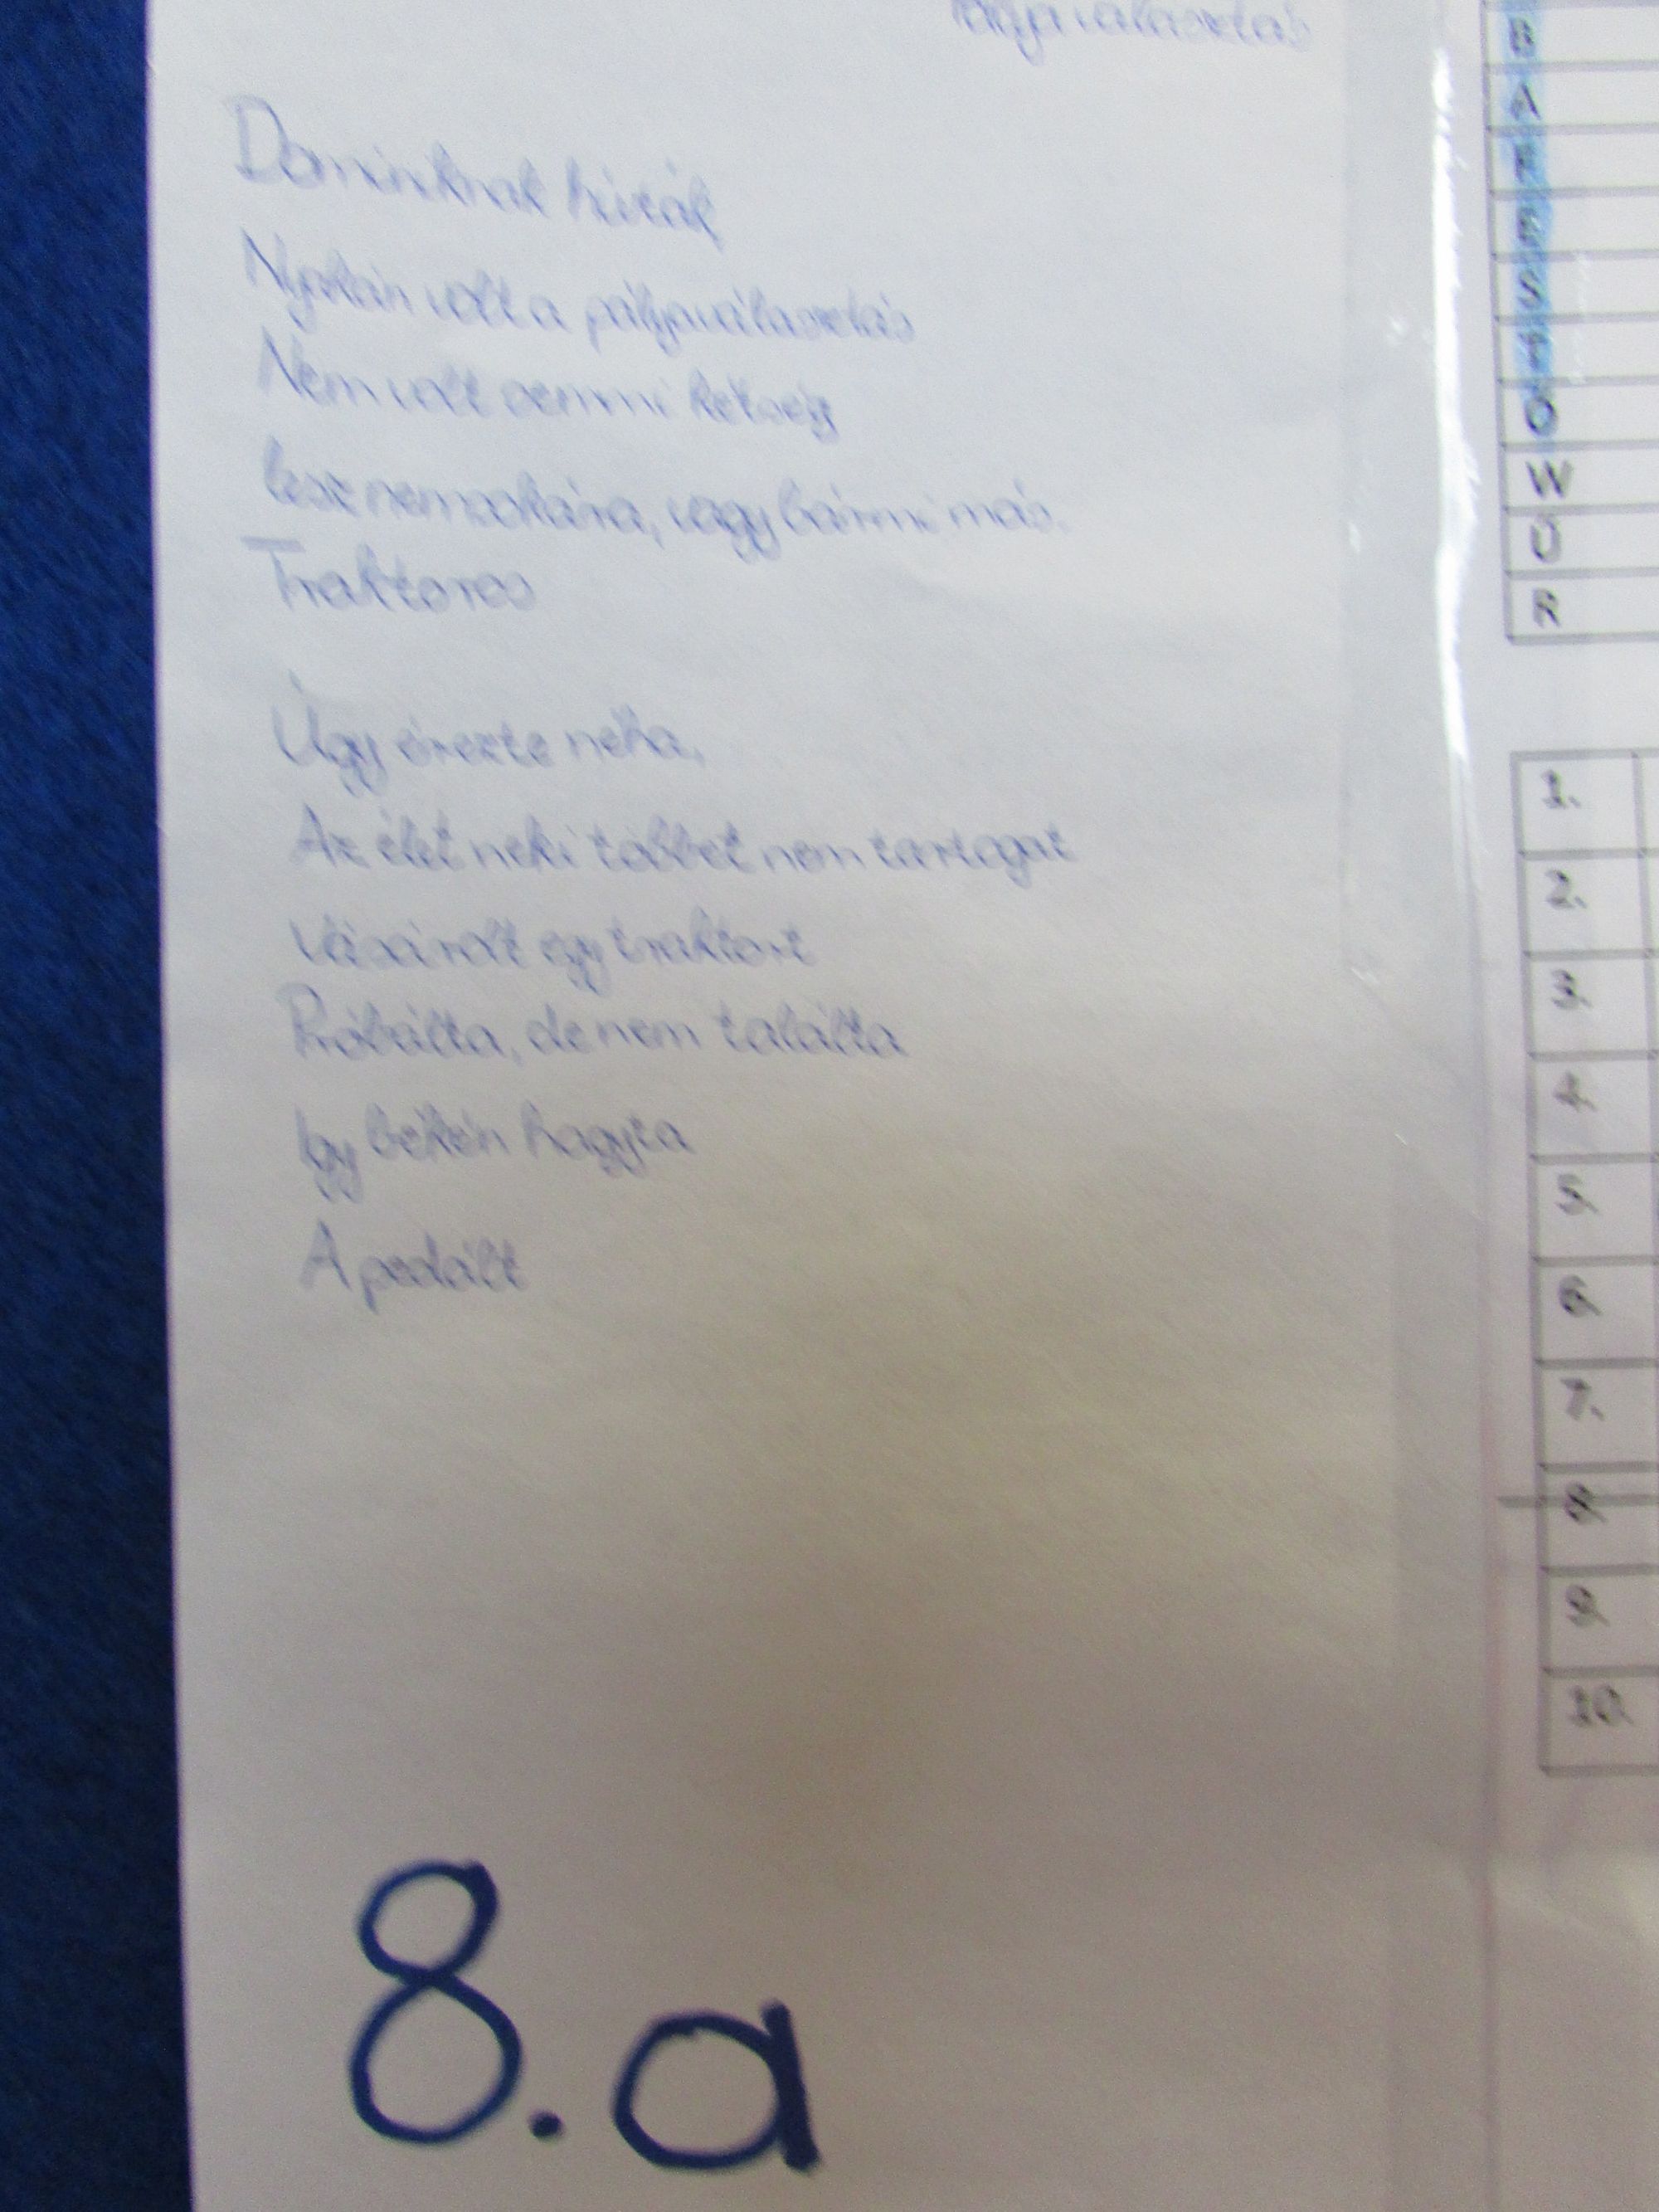 Pályaválasztás
Dominiknak hívták
Nyakán volt a pályaválasztás
Nem volt semmi kétség
lesz nemsokára, vagy bármi más.
Traktoros
Úgy érezte néha,
Az élet neki többet nem tartogat
Vásárolt egy traktort
Próbálta, de nem találta
Így békén hagyta
A pedált
8.a
B
A
F
E
S
T
O
W
Ü
R
1.
2.
3.
4.
5.
6.
7.
8.
9.
10.